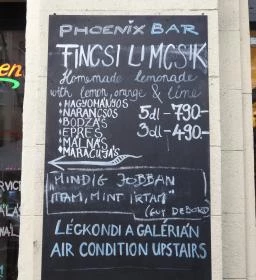 PHOENIX BAR
FINCSI LIMCSIK
Homemade lemonade
with lemon, orange & lime
HAGYOMÁNYOS
NARANCSOS 5dl-790-
BODZÁS
EPRES 3dl-490-
MÁLNÁS
MARACUJÁS
"MINDIG JOBBAN
ITTAM, MINT ÍRTAM"
(GUY DEBORD)
LÉGKONDI A GALÉRIÁN
AIR CONDITION UPSTAIRS